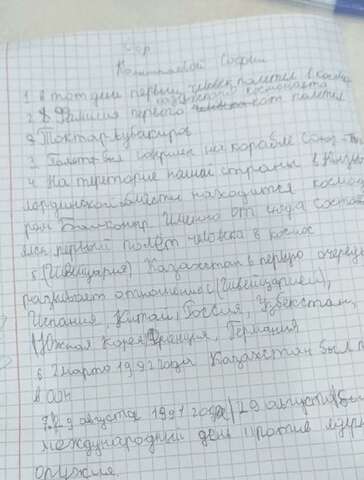 Сор
Софии
1 В тот день первый человек полетел в космо
2. Фамилия первого казахского космонавта кот полетел
2 Токтар Аубакиров
3 Полет был совершен на корабле Союз-Тм
4 На територие нашей страны в Кызыл
ординской области находится космод
ром Байконыр Именно от сюда состоя
лся первый полёт человека в космос
5 (Швицария) Казахстан в первую очередь
развивает отношение с (Швейцарией),
Испания, Китай, Россия, Узбекстан,
Южная Корея, Франция, Германия
6 2 марта 1992 года Казахстан был п
в оон
7. 29 августа 1991 года 29 августа был
международный день против ядерн
оружия.